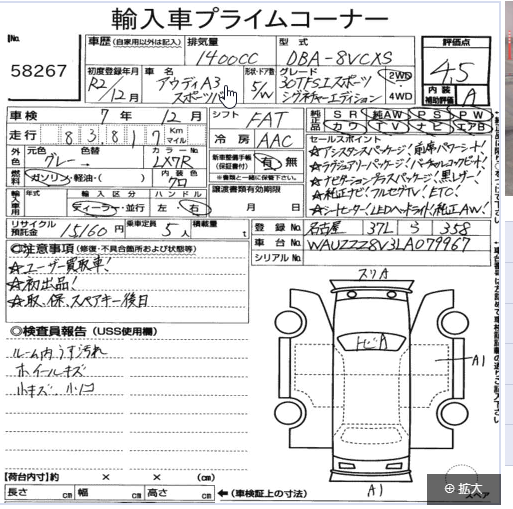 輸入車プライムコーナー
No.
58267
車歴 (自家用以外は記入)
排気量
1400CC
型式
DBA-8VCXS
評価点
4.5
内装
補助評価
A
初度登録年月
R2/12月
車名
アウディA3
スポーツバ
形状・ドア数
5/W
グレード
30TFSIスポーツ
シグネチャーエディション
2WD
4WD
車検 7年 12月
走行 83817 Km マイル
シフト FAT
冷房 AAC
純正品
SR 純AW PS PW
カワ TV ナビ エアB
外色
元色 グレー
色替
カラーNo. LX7R
燃料
ガソリン・軽油・( )
内装色 クロ
新車整備手帳
(保証書付)
有 無
※書類と一緒に保管下さい。
セールスポイント
☆アシスタンスパッケージ!前席パワーシート!
☆ラグジュアリーパッケージ!バーチャルコックピット!
☆ナビゲーションプラスパッケージ!黒レザー!
☆純正ナビ!フルセグTV!ETC!
☆シートヒーター!LEDヘッドライト!純正AW!
輸入車用
年式
輸入区分
ディーラー・並行
ハンドル
左・右
譲渡書類有効期限
月 日
リサイクル預託金 15160円
乗車定員 5人
積載量 t
登録No. 名古屋 371 ら 358
車台No. WAUZZZ8V3LA079967
シリアルNo.
◎注意事項 (修復・不具合箇所および状態等)
☆ユーザー買取車!
☆初出品!
☆取、保、スペアキー後日
◎検査員報告 (USS使用欄)
ルーム内うす汚れ
ホイールキズ
小キズ 小凹コ
スリA
トビA
A1
A1
スペア
【荷台内寸】約 × × (cm)
長さ cm 幅 cm 高さ cm
←(車検証上の寸法)
拡大